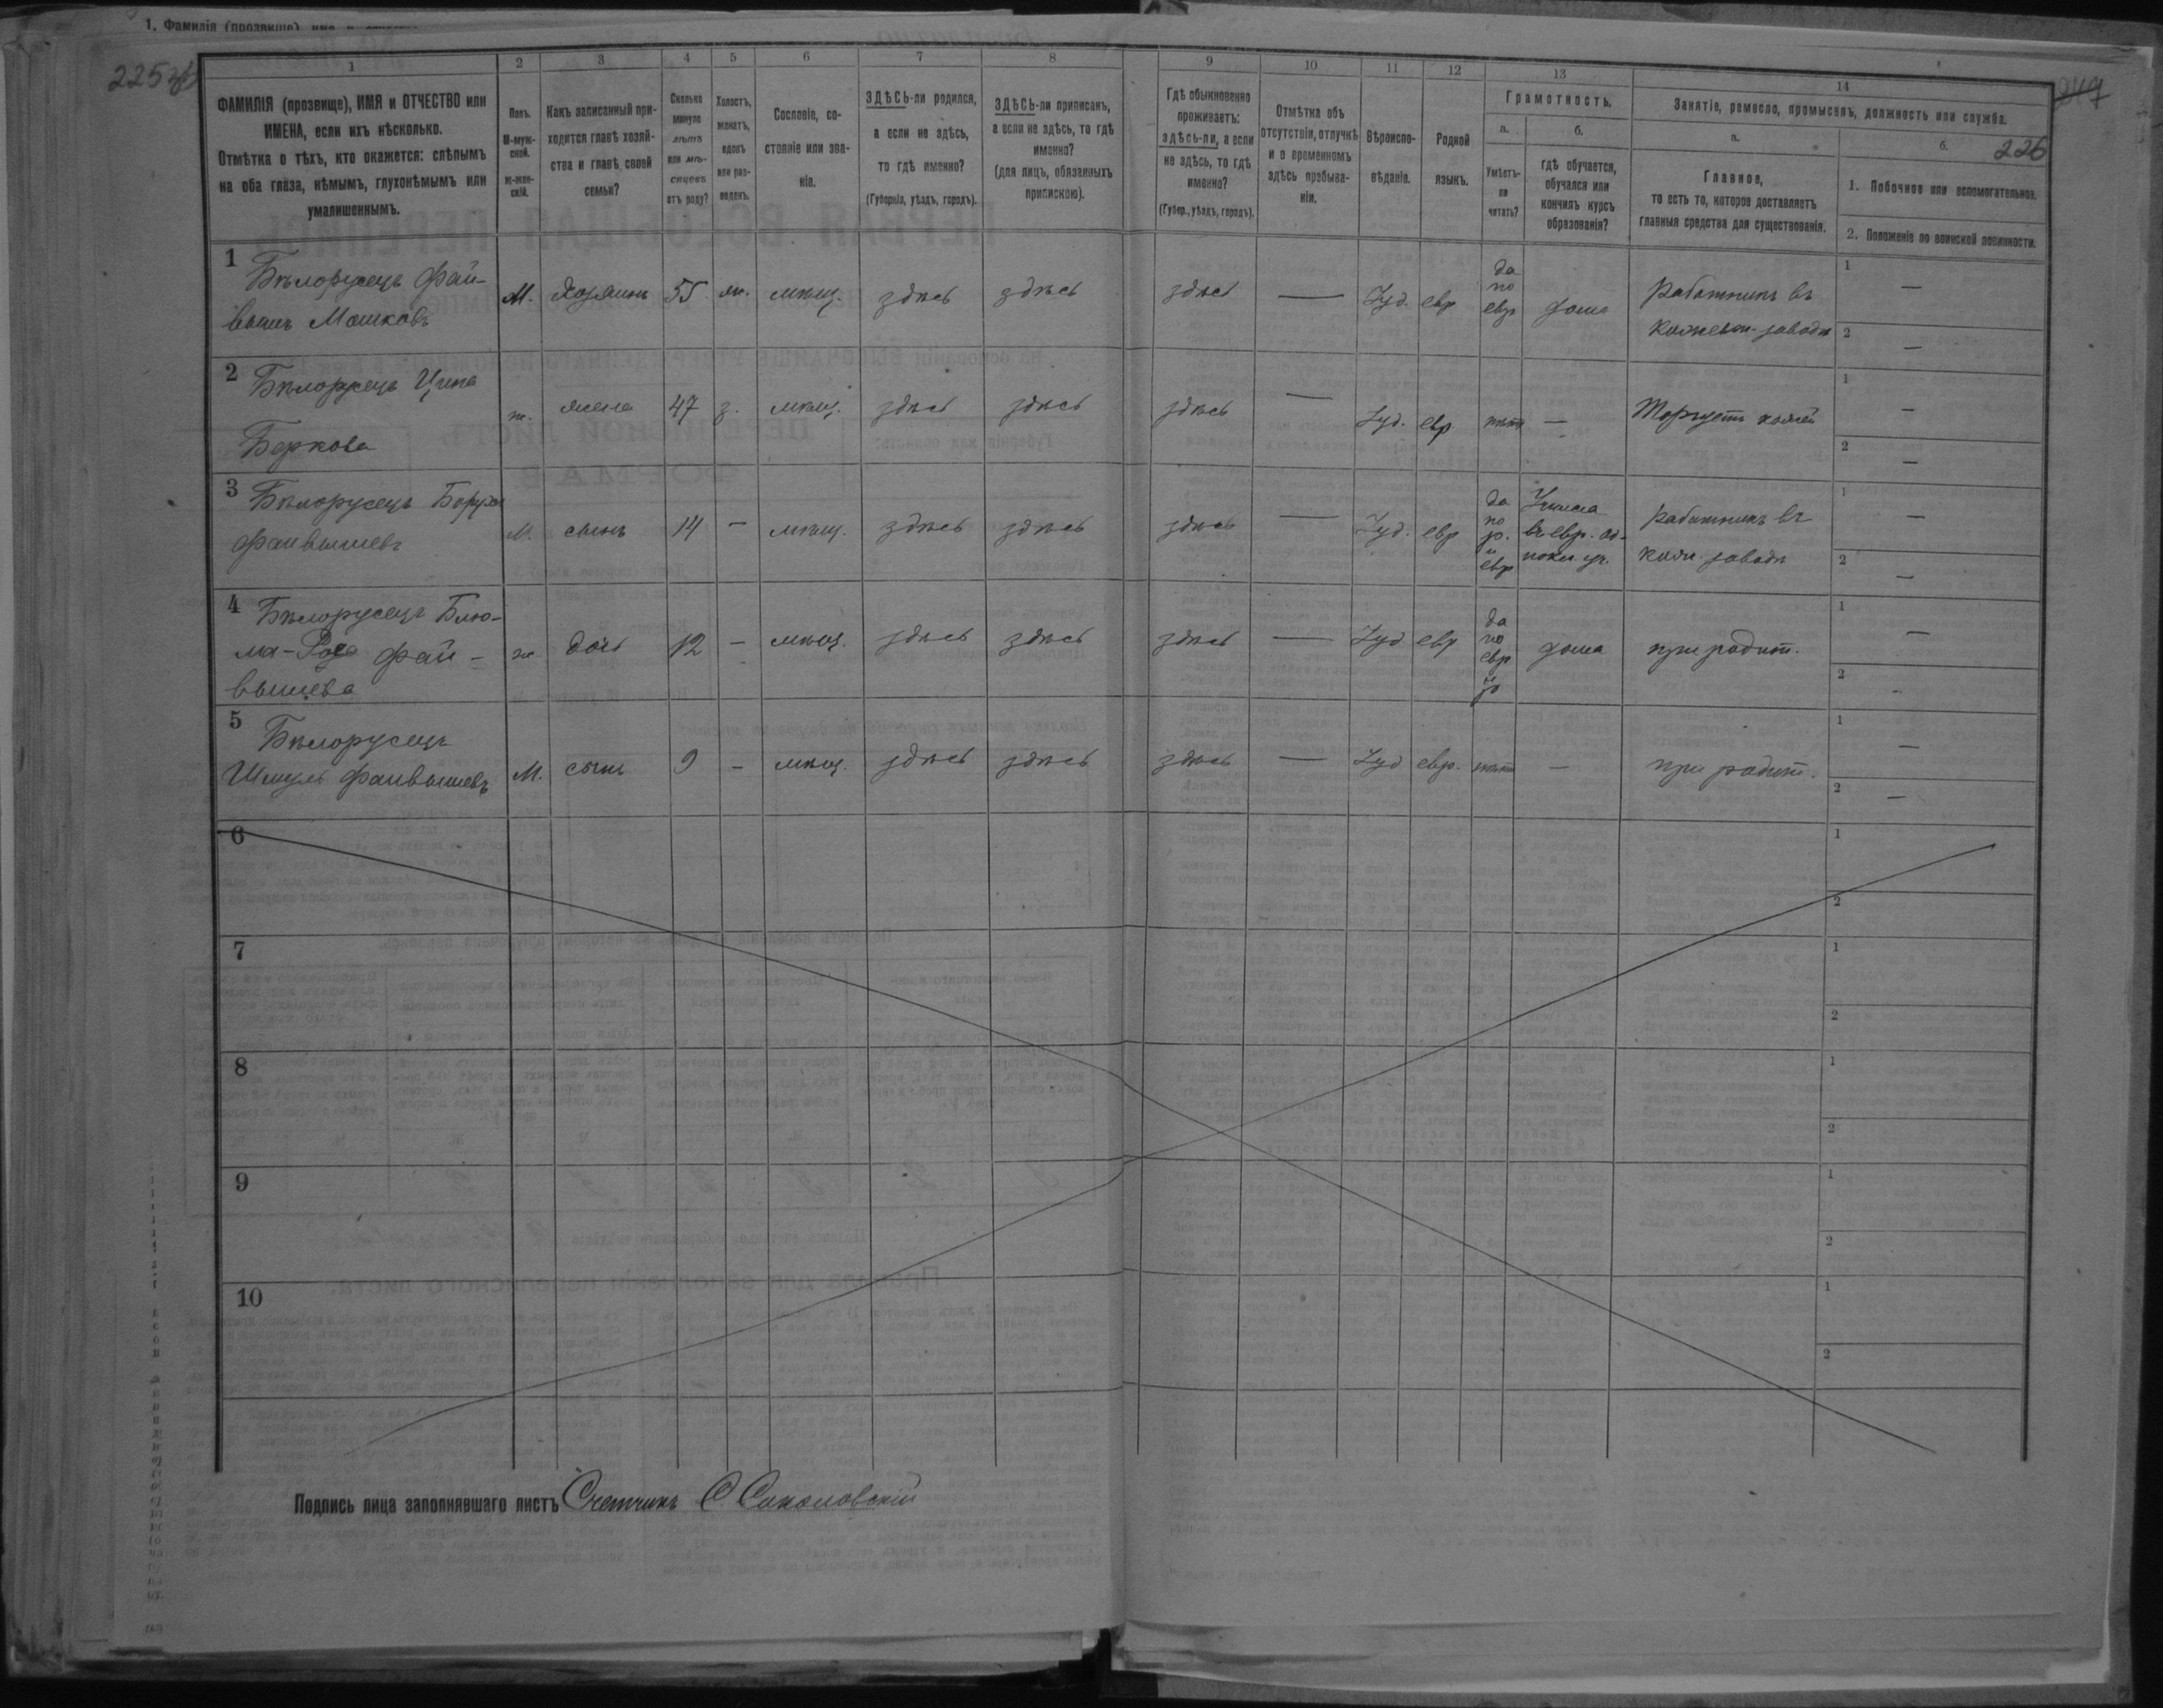 1. Фамилія (прозвище), имя
225об
249
226
1
2
3
4
5
6
7
8
9
10
11
12
13
14
ФАМИЛІЯ (прозвище), ИМЯ и ОТЧЕСТВО или
ИМЕНА, если ихъ нѣсколько.
Отмѣтка о тѣхъ, кто окажется: слѣпымъ
на оба глаза, нѣмымъ, глухонѣмымъ или
умалишеннымъ.
Полъ.
М-муж-
ской.
ж-жен-
скій.
Какъ записанный при-
ходится главѣ хозяй-
ства и главѣ своей
семьи?
Сколько
минуло
лѣтъ
или мѣ-
сяцевъ
отъ роду?
Холостъ,
женатъ,
вдовъ
или раз-
веденъ.
Сословіе, со-
стояніе или зва-
ніе.
ЗДѢСЬ-ли родился,
а если не здѣсь,
то гдѣ именно?
(Губернія, уѣздъ, городъ).
ЗДѢСЬ-ли приписанъ,
а если не здѣсь, то гдѣ
именно?
(для лицъ, обязанныхъ
припискою).
Гдѣ обыкновенно
проживаетъ:
здѣсь-ли, а если
не здѣсь, то гдѣ
именно?
(Губер., уѣздъ, городъ).
Отмѣтка объ
отсутствіи, отлучкѣ
и о временномъ
здѣсь пребыва-
ніи.
Вѣроиспо-
вѣданіе.
Родной
языкъ.
Грамотность.
а.
Умѣетъ-
ли
читать?
б.
гдѣ обучается,
обучался или
кончилъ курсъ
образованія?
Занятіе, ремесло, промыселъ, должность или служба.
а.
Главное,
то есть то, которое доставляетъ
главныя средства для существованія.
б.
1. Побочное или вспомогательное.
2. Положеніе по воинской повинности.
1
Бѣлорусецъ Фай-
вышъ Мошковъ
М.
Хозяинъ
55
ж.
мѣщ.
здѣсь
здѣсь
здѣсь
—
Іуд.
евр
да
по
евр
дома
Работникъ въ
кожевен. заводѣ
1
—
2
—
2
Бѣлорусецъ Ципа
Беркова
ж.
жена
47
з.
мѣщ.
здѣсь
здѣсь
здѣсь
—
Іуд.
евр
нѣтъ
—
Торгуетъ кожей
1
—
2
—
3
Бѣлорусецъ Борухъ
Файвышевъ
М.
сынъ
14
—
мѣщ.
здѣсь
здѣсь
здѣсь
—
Іуд.
евр
да
по
р.
и
евр
въ евр.
уч.
Работникъ въ
кож. заводѣ
1
—
2
—
4
Бѣлорусецъ Блю-
ма-Роза Фай-
вышева
ж
дочь
12
—
мѣщ.
здѣсь
здѣсь
здѣсь
—
Іуд
евр
да
по
евр
и
р
дома
при родит.
1
—
2
-
5
Бѣлорусецъ
Шмуль Файвышевъ
М.
сынъ
9
—
мѣщ.
здѣсь
здѣсь
здѣсь
—
Іуд
евр.
нѣтъ
—
при родит.
1
—
2
—
6
1
2
7
1
2
8
1
2
9
1
2
10
1
2
Подпись лица заполнявшаго листъ Счетчикъ С Соколовскій